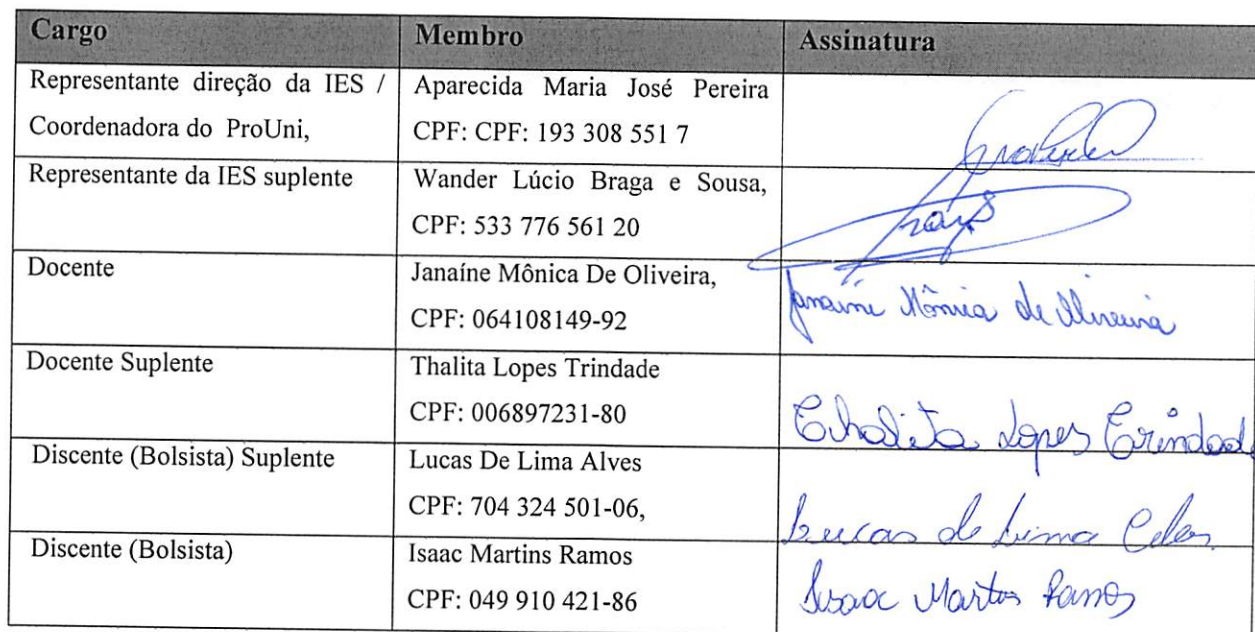 Cargo Membro Assinatura
Representante direção da IES / Aparecida Maria José Pereira
Coordenadora do ProUni, CPF: CPF: 193 308 551 7
Representante da IES suplente Wander Lúcio Braga e Sousa,
CPF: 533 776 561 20
Docente Janaíne Mônica De Oliveira,
CPF: 064108149-92 Janaíne Mônica de Oliveira
Docente Suplente Thalita Lopes Trindade
CPF: 006897231-80 Thalita Lopes Trindade
Discente (Bolsista) Suplente Lucas De Lima Alves
CPF: 704 324 501-06, Lucas de Lima Alves
Discente (Bolsista) Isaac Martins Ramos
CPF: 049 910 421-86 Isaac Martins Ramos